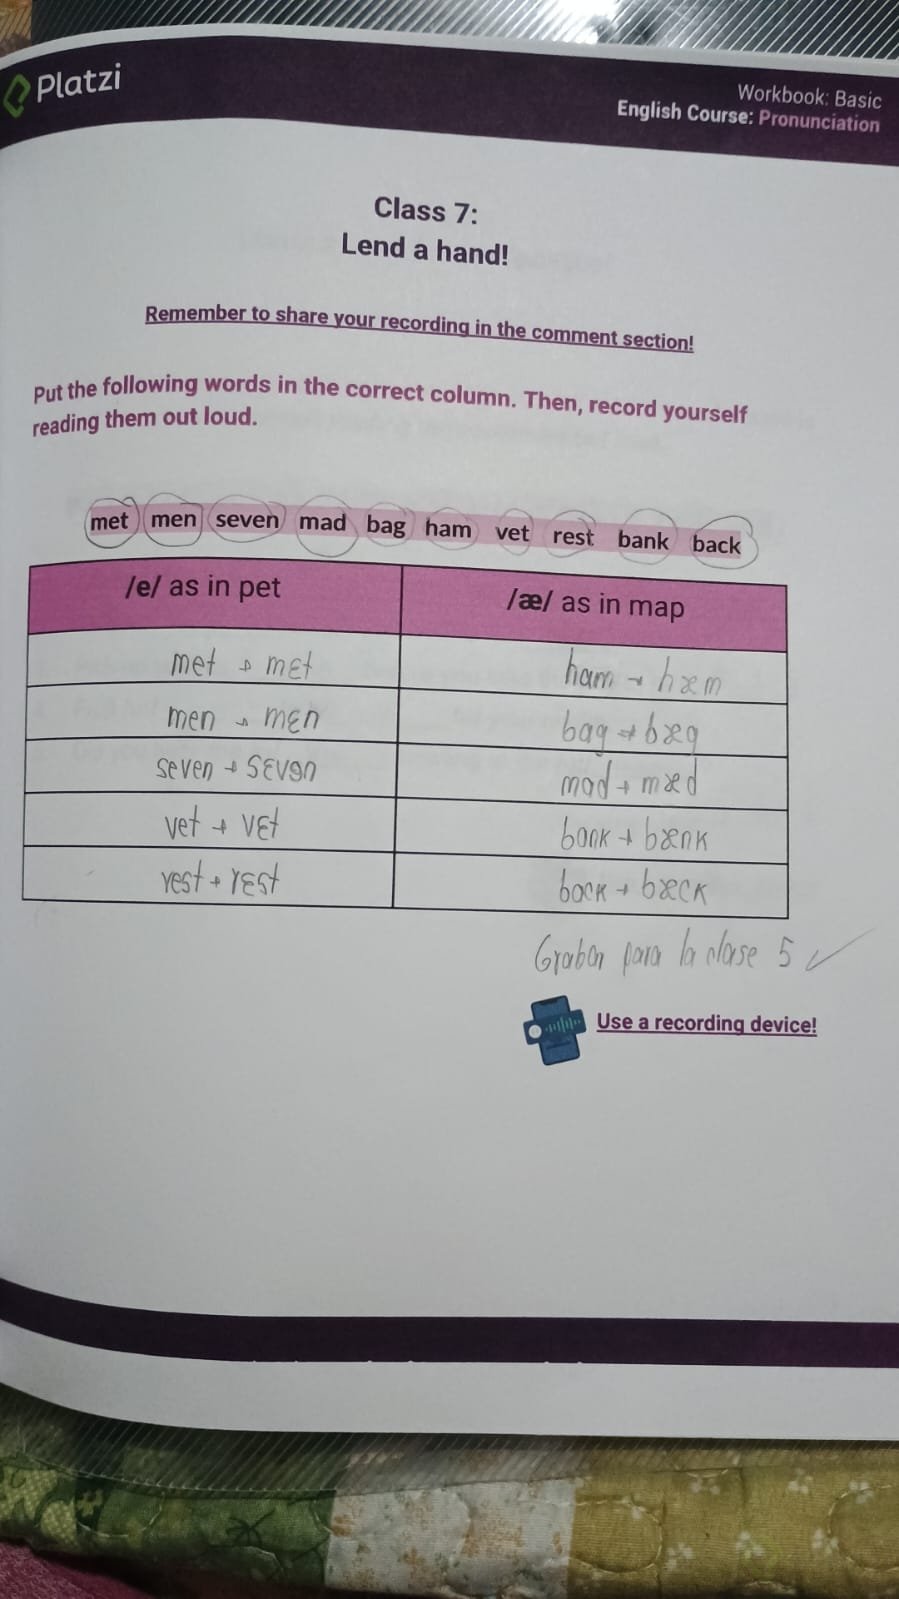 Platzi
Workbook: Basic
English Course: Pronunciation
Class 7:
Lend a hand!
Remember to share your recording in the comment section!
Put the following words in the correct column. Then, record yourself
reading them out loud.
met men seven mad bag ham vet rest bank back
/e/ as in pet /æ/ as in map
met → mɛt ham → hæm
men → mɛn bag → bæg
seven → sɛvən mad → mæd
vet → vɛt bank → bænk
rest → rɛst back → bæck
Grabar para la clase 5 ✓
Use a recording device!